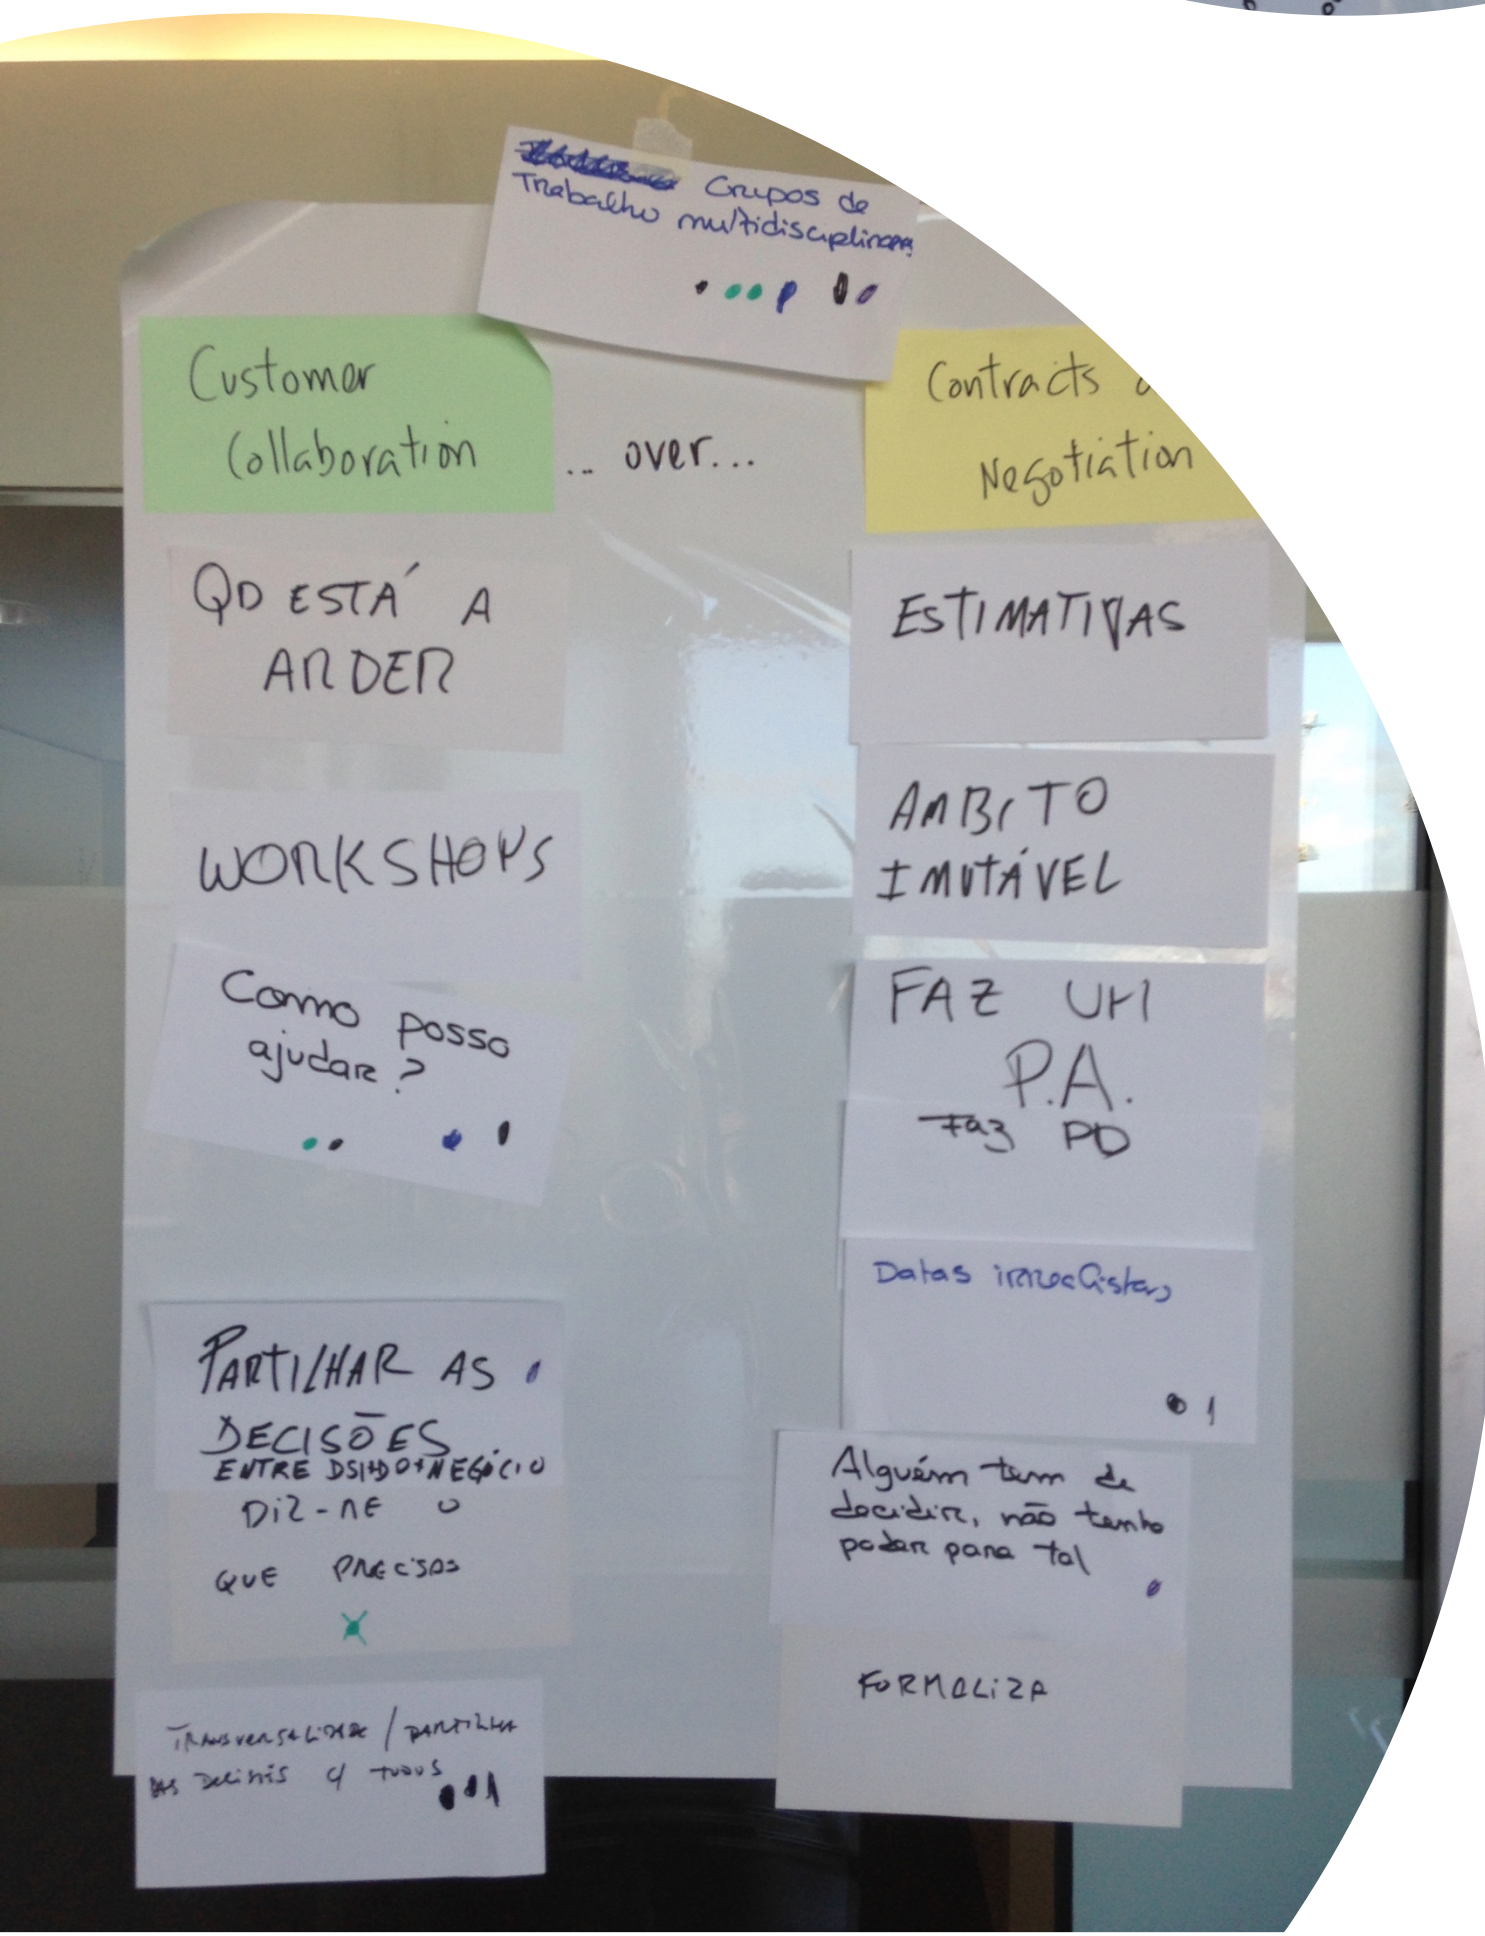 Grupos de
Trabalho multidisciplinares
Customer
Collaboration
... over...
Contracts
Negotiation
QD ESTÁ A
ARDER
WORKSHOPS
Como posso
ajudar?
PARTILHAR AS
DECISÕES
ENTRE DSI+DO+NEGÓCIO
DIZ-ME O
QUE PRECISAS
TRANSVERSALIDADE / PARTILHA
DAS DECISÕES C/ TODOS
ESTIMATIVAS
AMBITO
IMUTÁVEL
FAZ UM
P.A.
Faz PD
Datas irrealistas
Alguém tem de
decidir, não tenho
poder para tal
FORMALIZA